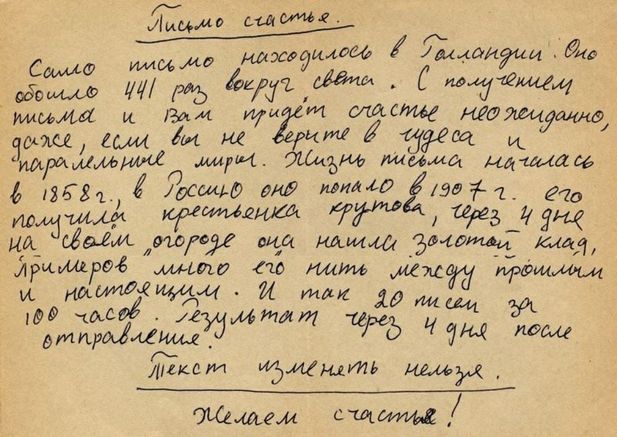 Письмо счастье.
Само письмо находилось в Голландии. Оно
обошло 441 раз вокруг света. С получением
письма и вам придёт счастье неожиданно,
даже, если вы не верите в чудеса и
паралельные миры. Жизнь письма началась
в 1858г., в Россию оно попало в 1907г. его
получила крестьенка крутова, через 4 дне
на своём огороде она нашла золотой клад,
примеров много его нить между прошлым
и настоящим. И так 20 писем за
100 часов. Результат через 4 дня после
отправление.
Текст изменять нельзя.
Желаем счастье!